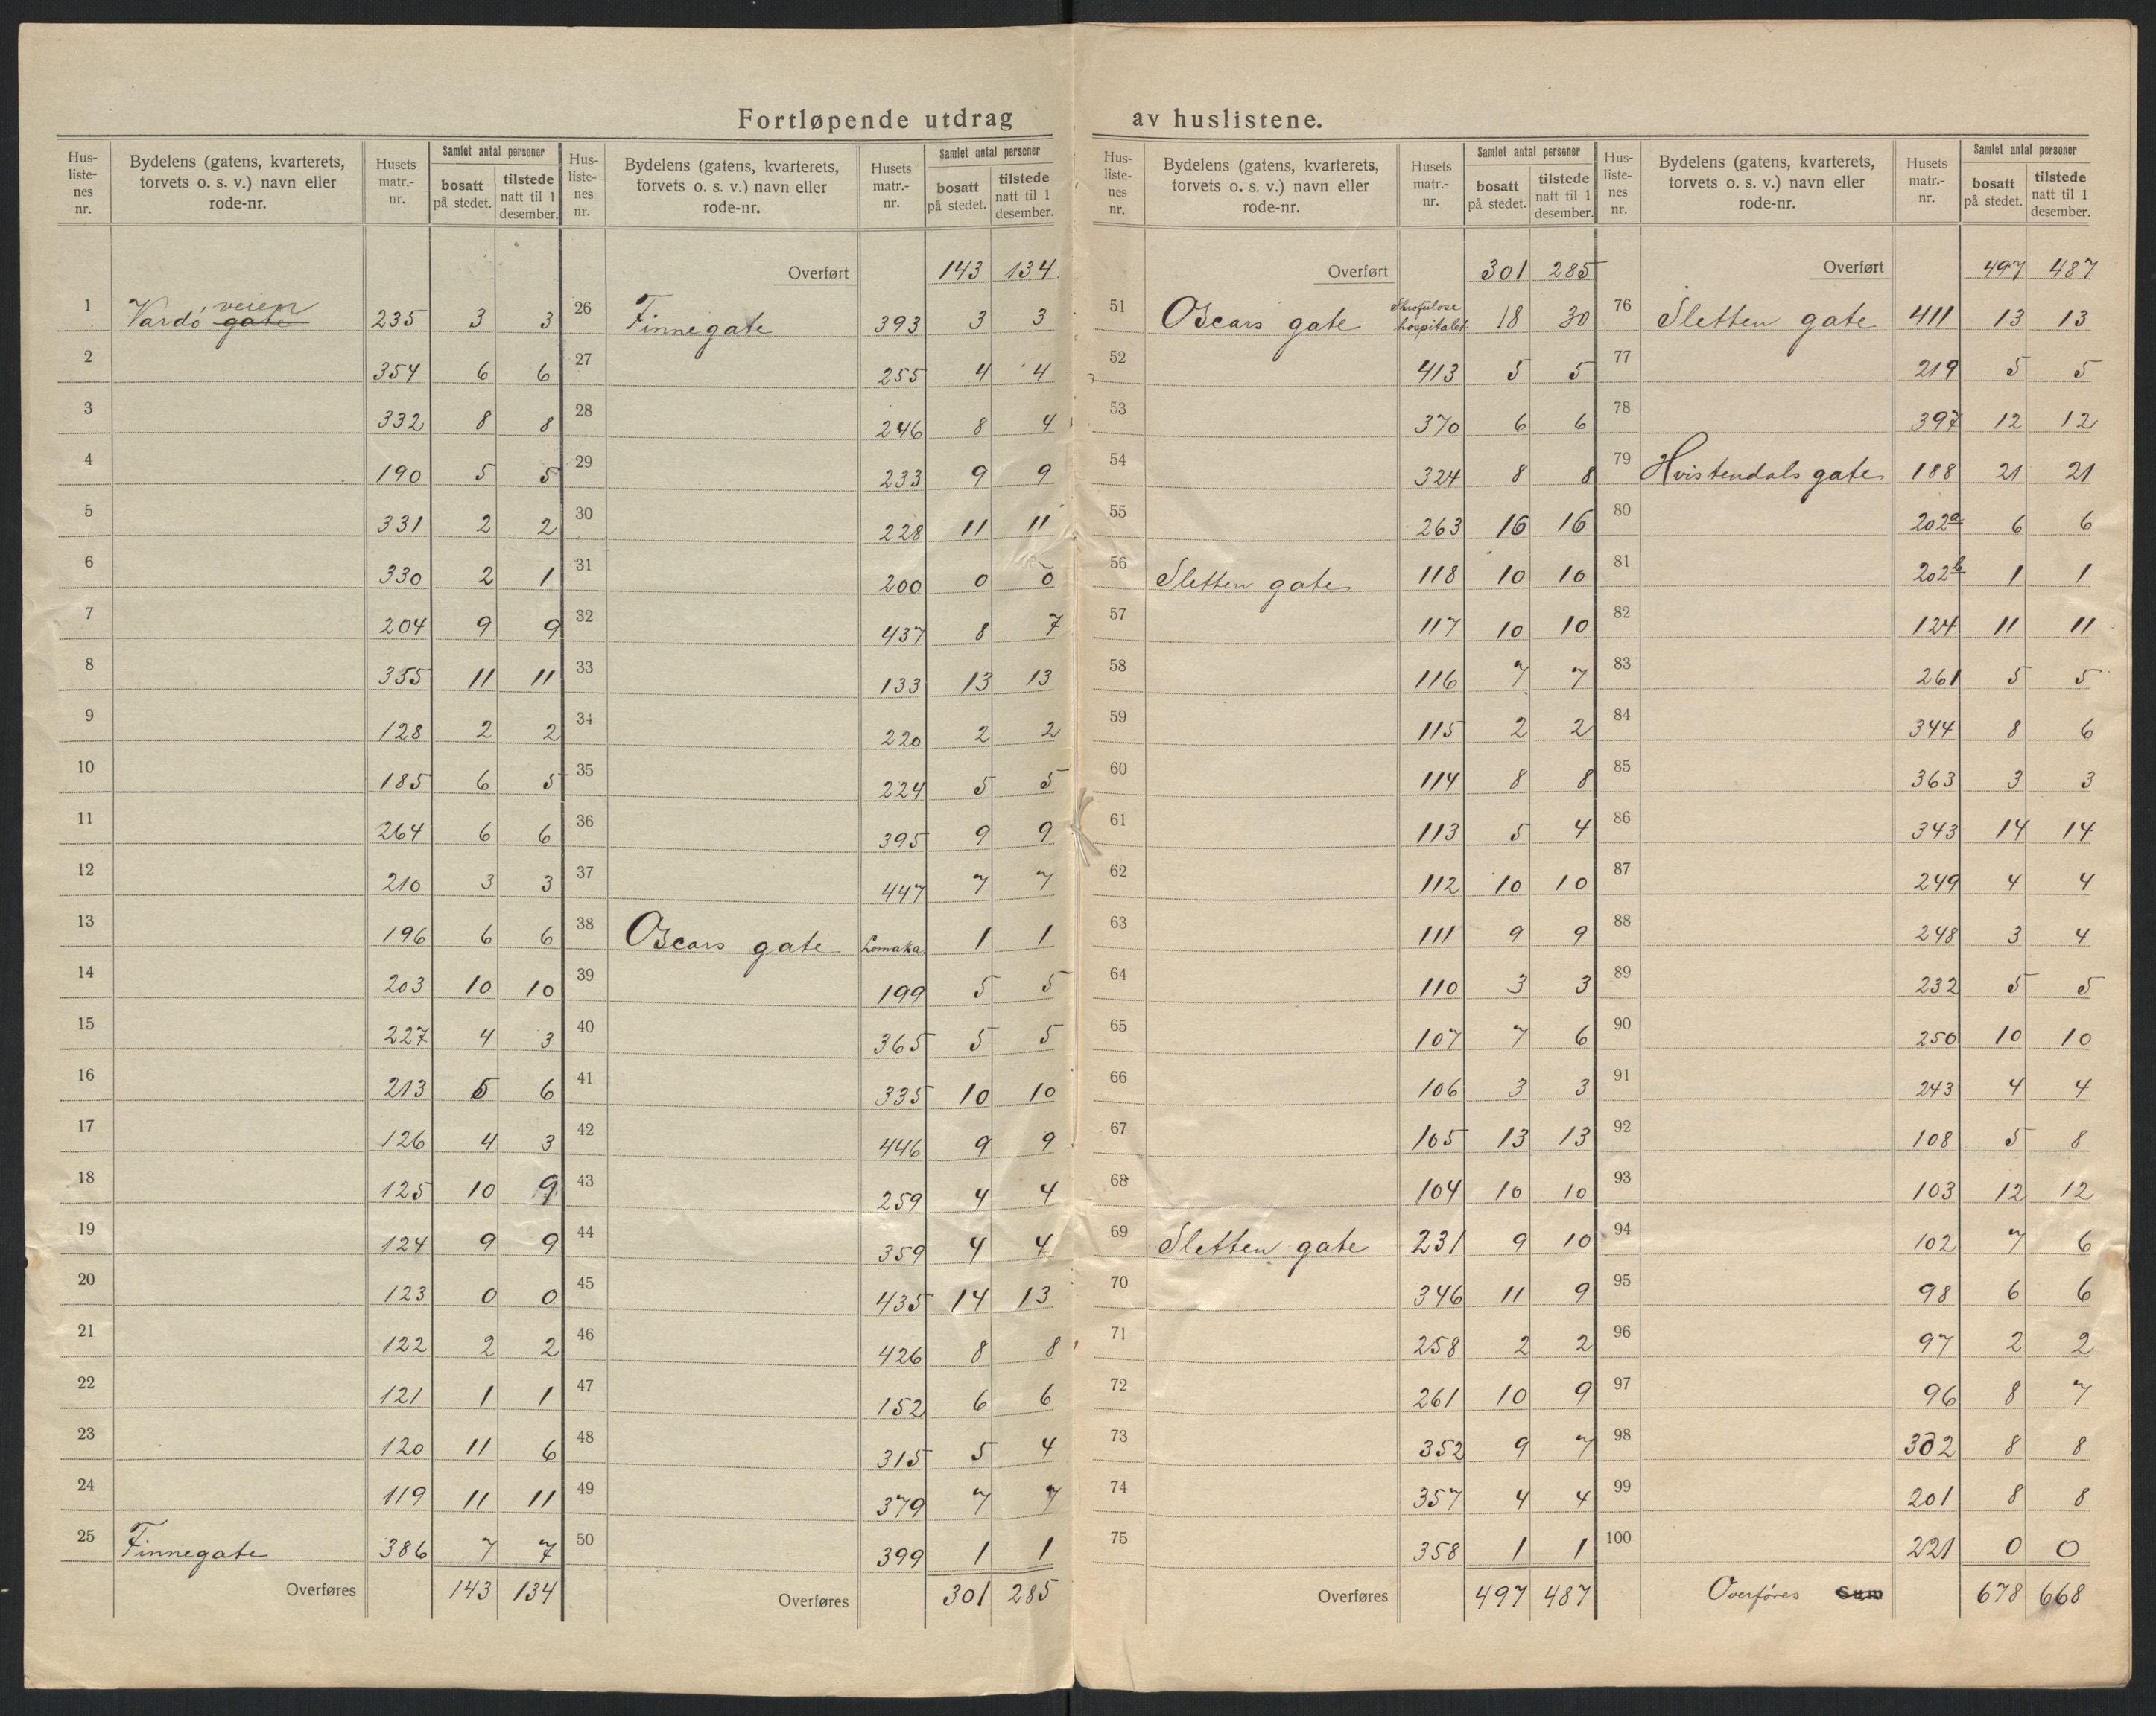 Fortløpende utdrag av huslistene.
Hus-listenes nr. | Bydelens (gatens, kvarterets, torvets o. s. v.) navn eller rode-nr. | Husets matr.-nr. | Samlet antal personer bosatt på stedet. | tilstede natt til 1 desember.
1 Vardø ~~gate~~ veien 235 3 3
2 354 6 6
3 332 8 8
4 190 5 5
5 331 2 2
6 330 2 1
7 204 9 9
8 355 11 11
9 128 2 2
10 185 6 5
11 264 6 6
12 210 3 3
13 196 6 6
14 203 10 10
15 227 4 3
16 213 5 6
17 126 4 3
18 125 10 9
19 124 9 9
20 123 0 0
21 122 2 2
22 121 1 1
23 120 11 6
24 119 11 11
25 Finnegate 386 7 7
Overføres 143 134
Hus-listenes nr. | Bydelens (gatens, kvarterets, torvets o. s. v.) navn eller rode-nr. | Husets matr.-nr. | Samlet antal personer bosatt på stedet. | tilstede natt til 1 desember.
Overført 143 134
26 Finnegate 393 3 3
27 255 4 4
28 246 8 4
29 233 9 9
30 228 11 11
31 200 0 0
32 437 8 7
33 133 13 13
34 220 2 2
35 224 5 5
36 395 9 9
37 447 7 7
38 Oscars gate Lomaka 1 1
39 199 5 5
40 365 5 5
41 335 10 10
42 446 9 9
43 259 4 4
44 359 4 4
45 435 14 13
46 426 8 8
47 152 6 6
48 315 5 4
49 379 7 7
50 399 1 1
Overføres 301 285
Hus-listenes nr. | Bydelens (gatens, kvarterets, torvets o. s. v.) navn eller rode-nr. | Husets matr.-nr. | Samlet antal personer bosatt på stedet. | tilstede natt til 1 desember.
Overført 301 285
51 Oscars gate Skrofulose hospitalet 18 30
52 413 5 5
53 370 6 6
54 324 8 8
55 263 16 16
56 Sletten gate 118 10 10
57 117 10 10
58 116 7 7
59 115 2 2
60 114 8 8
61 113 5 4
62 112 10 10
63 111 9 9
64 110 3 3
65 107 7 6
66 106 3 3
67 105 13 13
68 104 10 10
69 Sletten gate 231 9 10
70 346 11 9
71 258 2 2
72 261 10 9
73 352 9 7
74 357 4 4
75 358 1 1
Overføres 497 487
Hus-listenes nr. | Bydelens (gatens, kvarterets, torvets o. s. v.) navn eller rode-nr. | Husets matr.-nr. | Samlet antal personer bosatt på stedet. | tilstede natt til 1 desember.
Overført 497 487
76 Sletten gate 411 13 13
77 219 5 5
78 397 12 12
79 Hvistendals gate 188 21 21
80 202a 6 6
81 202b 1 1
82 124 11 11
83 261 5 5
84 344 8 6
85 363 3 3
86 343 14 14
87 249 4 4
88 248 3 4
89 232 5 5
90 250 10 10
91 243 4 4
92 108 5 8
93 103 12 12
94 102 7 6
95 98 6 6
96 97 2 2
97 96 8 7
98 302 8 8
99 201 8 8
100 221 0 0
Overføres ~~Sum~~ 678 668